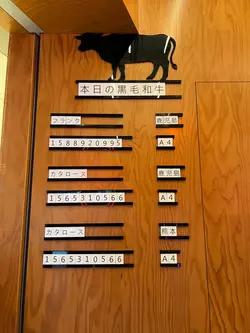 本日の黒毛和牛
フランク 鹿児島
1588920995 A4
カタロース 鹿児島
1565310566 A4
カタロース 熊本
1565310566 A4